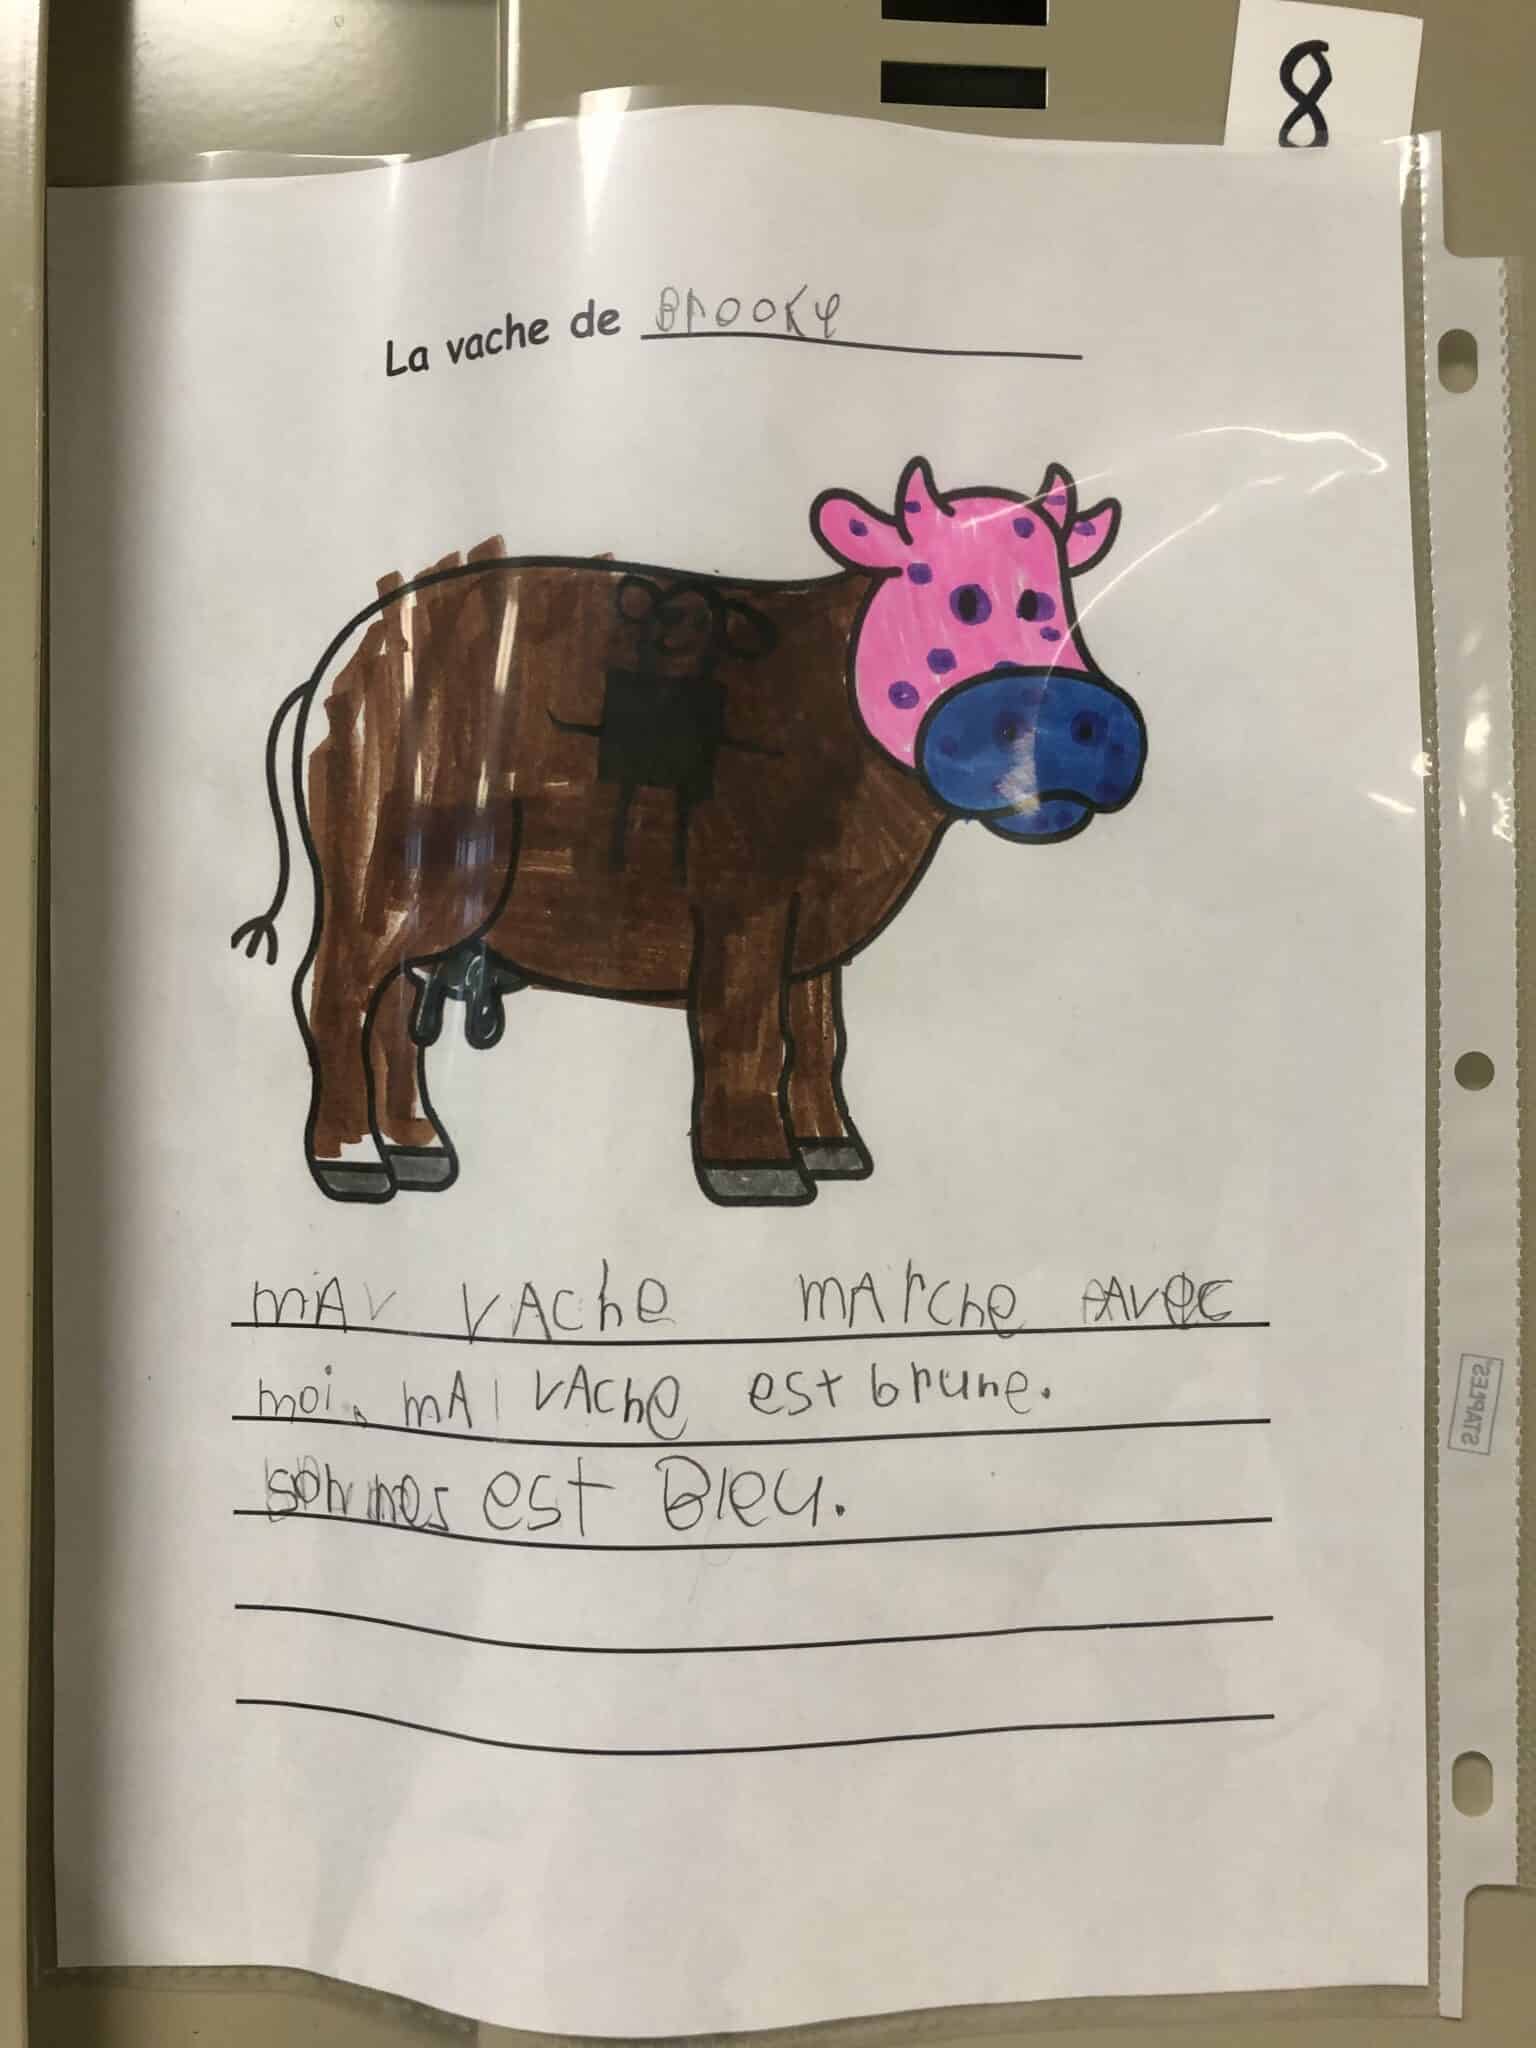 8
La vache de Brooke
mA vAche mArche Avec
moi. mA vAche est brune.
son nes est Bleu.
STAPLES